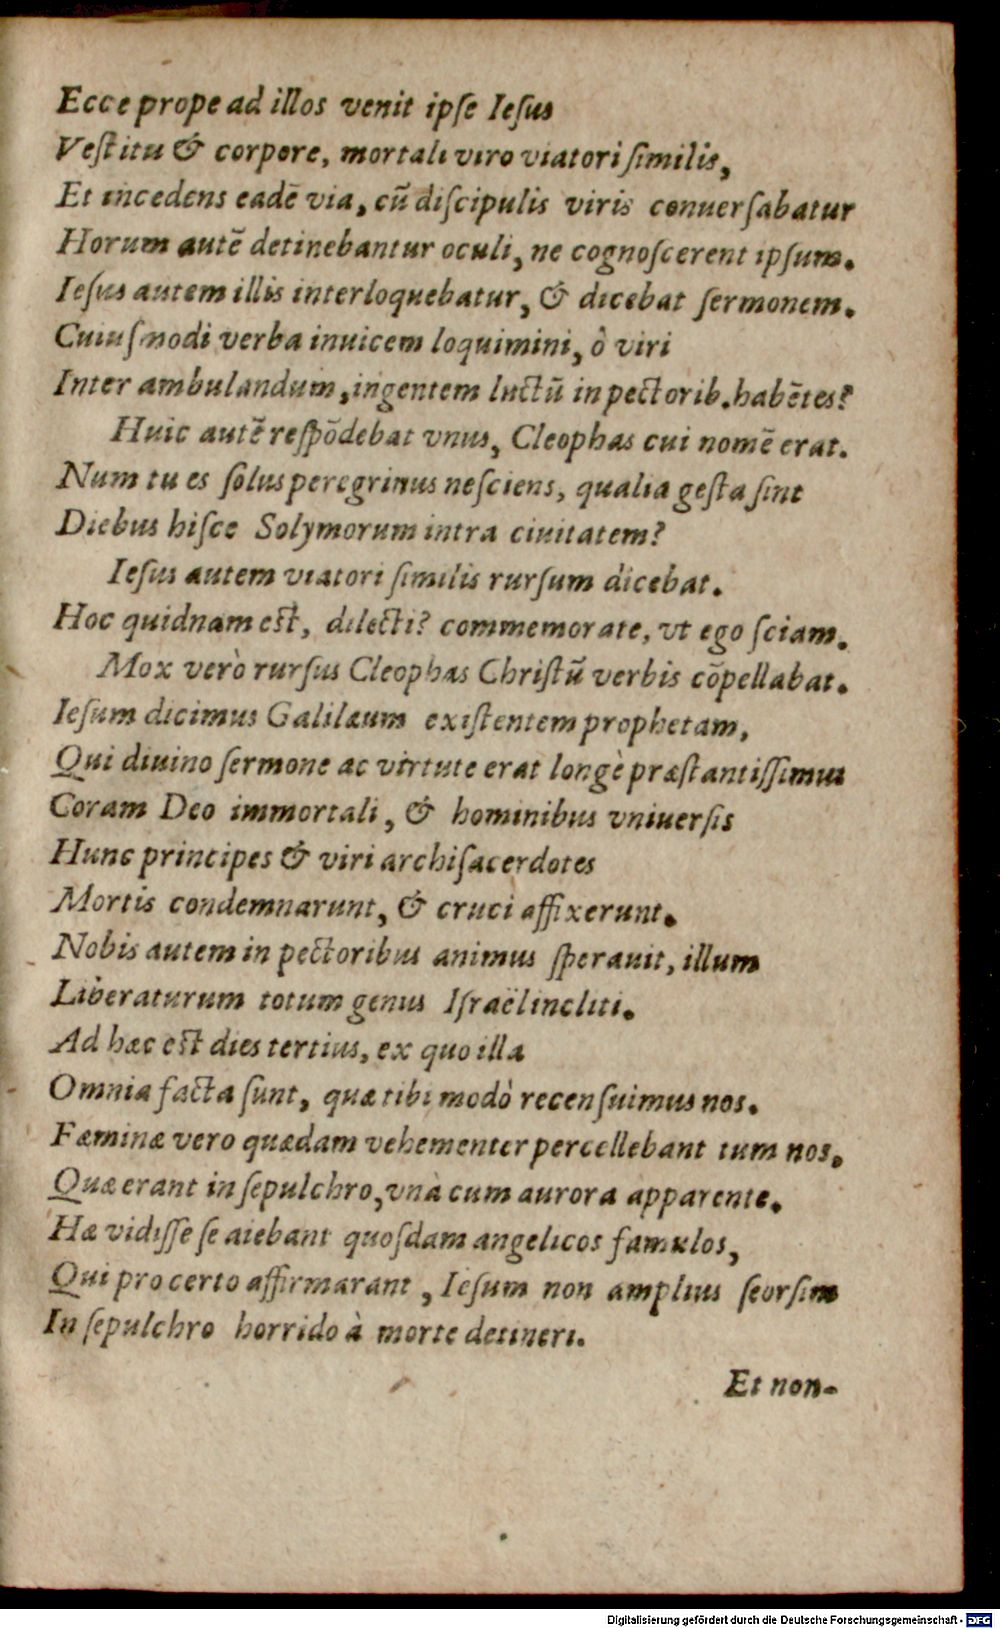 Ecce prope ad illos venit ipſe Ieſus
Veſtitu & corpore, mortali viro viatori ſimilis,
Et incedens eadē via, cū diſcipulis viris conuerſabatur
Horum autē detinebantur oculi, ne cognoſcerent ipſum.
Ieſus autem illis interloquebatur, & dicebat ſermonem.
Cuiuſmodi verba inuicem loquimini, ò viri
Inter ambulandum, ingentem luctū in pectorib. habētes?
Huic autē reſpōdebat vnus, Cleophas cui nomē erat.
Num tu es ſolus peregrinus neſciens, qualia geſta ſint
Diebus hiſce Solymorum intra ciuitatem?
Ieſus autem viatori ſimilis rurſum dicebat.
Hoc quidnam eſt, dilecti? commemorate, vt ego ſciam.
Mox verò rurſus Cleophas Chriſtū verbis cōpellabat.
Ieſum dicimus Galilæum exiſtentem prophetam,
Qui diuino ſermone ac virtute erat longè præſtantiſſimus
Coram Deo immortali, & hominibus vniuerſis
Hunc principes & viri archiſacerdotes
Mortis condemnarunt, & cruci affixerunt.
Nobis autem in pectoribus animus ſperauit, illum
Liberaturum totum genus Iſraël incliti.
Ad hæc eſt dies tertius, ex quo illa
Omnia facta ſunt, quæ tibi modò recenſuimus nos.
Fæminæ vero quædam vehementer percellebant tum nos.
Quæ erant in ſepulchro, vnà cum aurora apparente.
Hæ vidiſſe ſe aiebant quoſdam angelicos famulos,
Qui pro certo affirmarant, Ieſum non amplius ſeorſim
In ſepulchro horrido à morte detineri.
Et non-
Digitalisierung gefördert durch die Deutsche Forschungsgemeinschaft - DFG